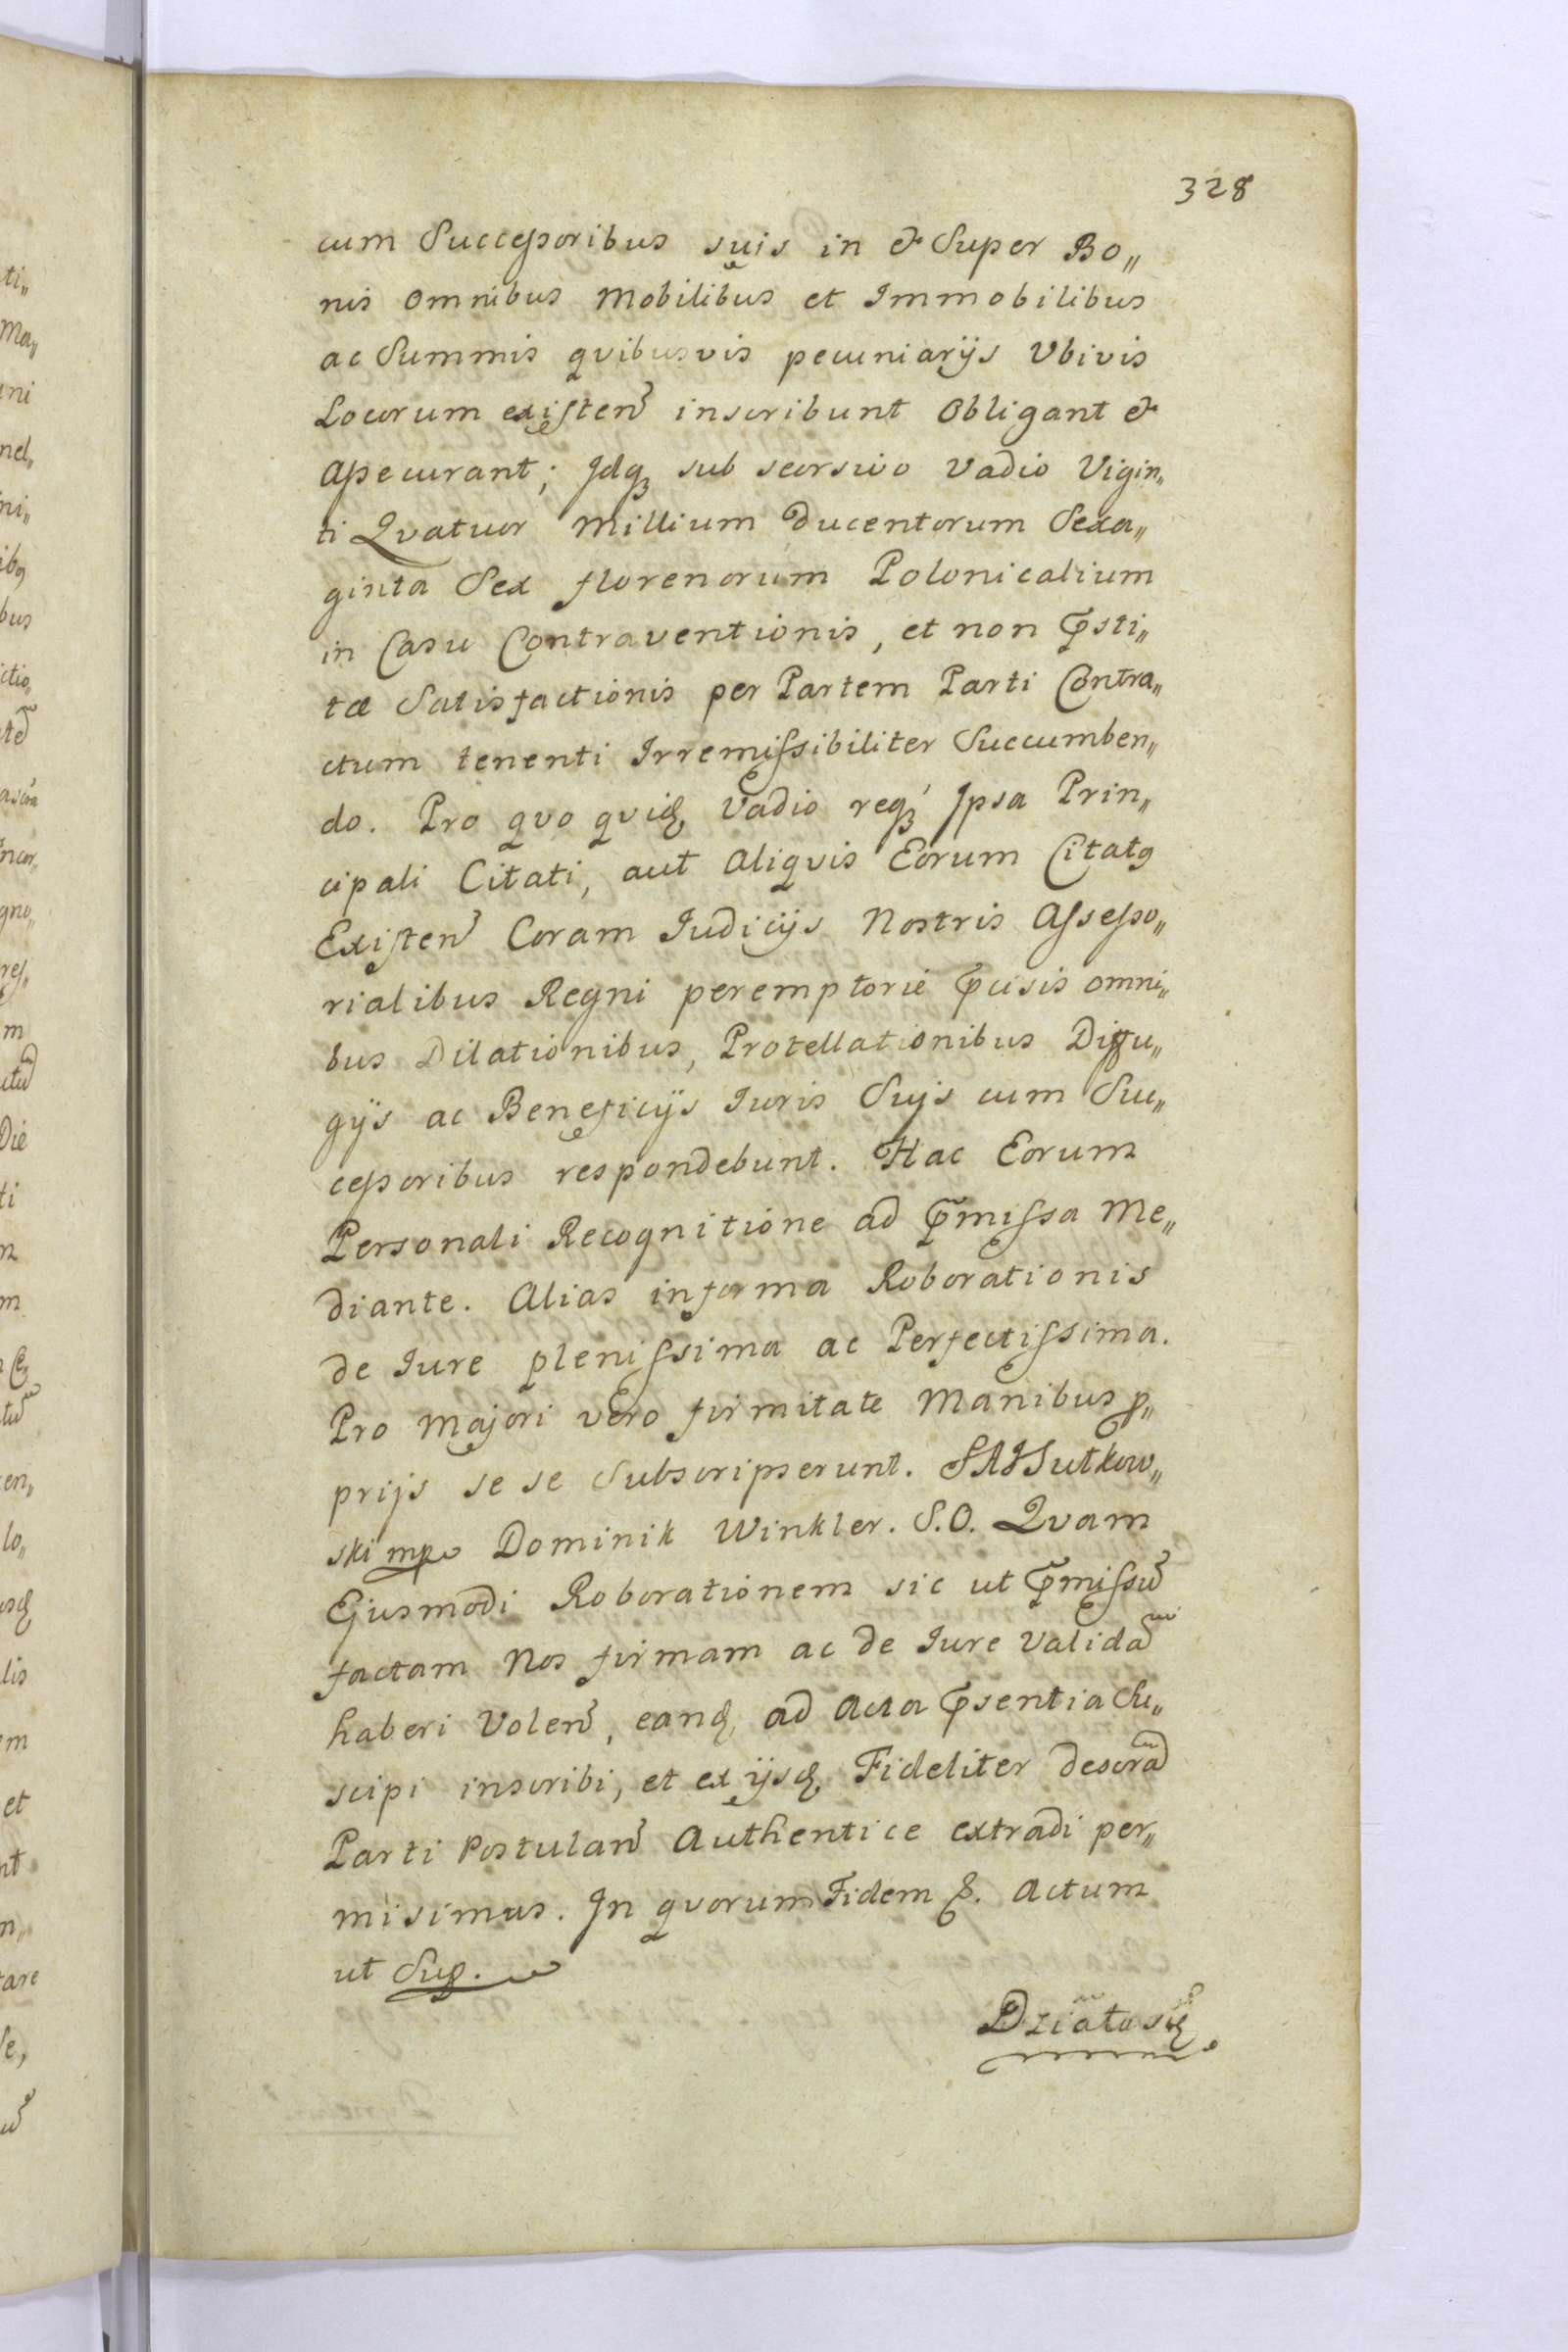 328
cum Successoribus suis in & Super Bo„
nis omnibus Mobilibus et Immobilibus
ac Summis qvibusvis pecuniarijs Vbivis
Locorum existen̄ inscribunt Obligant &
assecurant; Idqꝫ sub seorsivo Vadio Vigin„
ti Qvatuor Millium Ducentorum Sexa„
ginta Sex florenorum Polonicalium
in Casu Contraventionis, et non p̄sti„
tæ Satisfactionis per Partem Parti Contra„
ctum tenenti Irremissibiliter Succumben„
do. Pro qvo qvidꝫ Vadio reqꝫ Ipsa Prin„
cipali Citati, aut Aliqvis Eorum Citatꝯ
Existen̄ Coram Iudicijs Nostris Assesso„
rialibus Regni peremptorie p̄cisis omni„
bus Dilationibus, Protellationibus Diffu„
gijs ac Beneficijs Iuris Suis cum Suc„
cessoribus respondebunt. Hac Eorum
Personali Recognitione ad p̄missa Me„
diante. Alias in forma Roborationis
de Iure plenissima ac Perfectissima.
Pro Majori vero firmitate Manibus ꝓ„
prijs se se Subscripserunt. Sutkow„
ski mp Dominik Winkler. S.O. Qvam
Ejusmodi Roborationem sic ut p̄missū
factam Nos firmam ac de Iure Validā
haberi Volen̄, eandꝫ ad Acta p̄sentia Su„
scipi inscribi, et ex ijsdꝫ Fideliter descrā
Parti Postulan̄ Authentice extradi per„
misimus. In qvorum Fidem &. Actum
ut Sup.